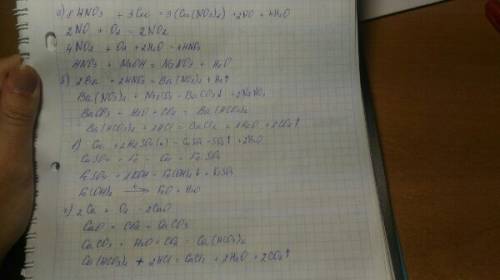 а) 8HNO3 + 3Cu = 3Cu(NO3)2 + 2NO + 4H2O
2NO + O2 = 2NO2
4NO2 + O2 + 2H2O = 4HNO3
HNO3 + NaOH = NaNO3 + H2O
б) 2HNO3 = Ba(NO3)2 + H2↑
Ba(NO3)2 + Na2CO3 = BaCO3↓ + 2NaNO3
BaCO3 + H2O + CO2 = Ba(HCO3)2
Ba(HCO3)2 + 2HCl = BaCl2 + 2H2O + 2CO2↑
в) Cu + 2H2SO4(к) = CuSO4 + SO2↑ + 2H2O
CuSO4 + Fe = Cu + FeSO4
FeSO4 + 2KOH = Fe(OH)2↓ +
Fe(OH)2 → FeO + H2O
2Ca + O2 = 2CaO
CaO + CO2 = CaCO3
CaCO3 + H2O + CO2 = Ca(HCO3)2
Ca(HCO3)2 + 2HCl = CaCl2 + 2H2O + 2CO2↑